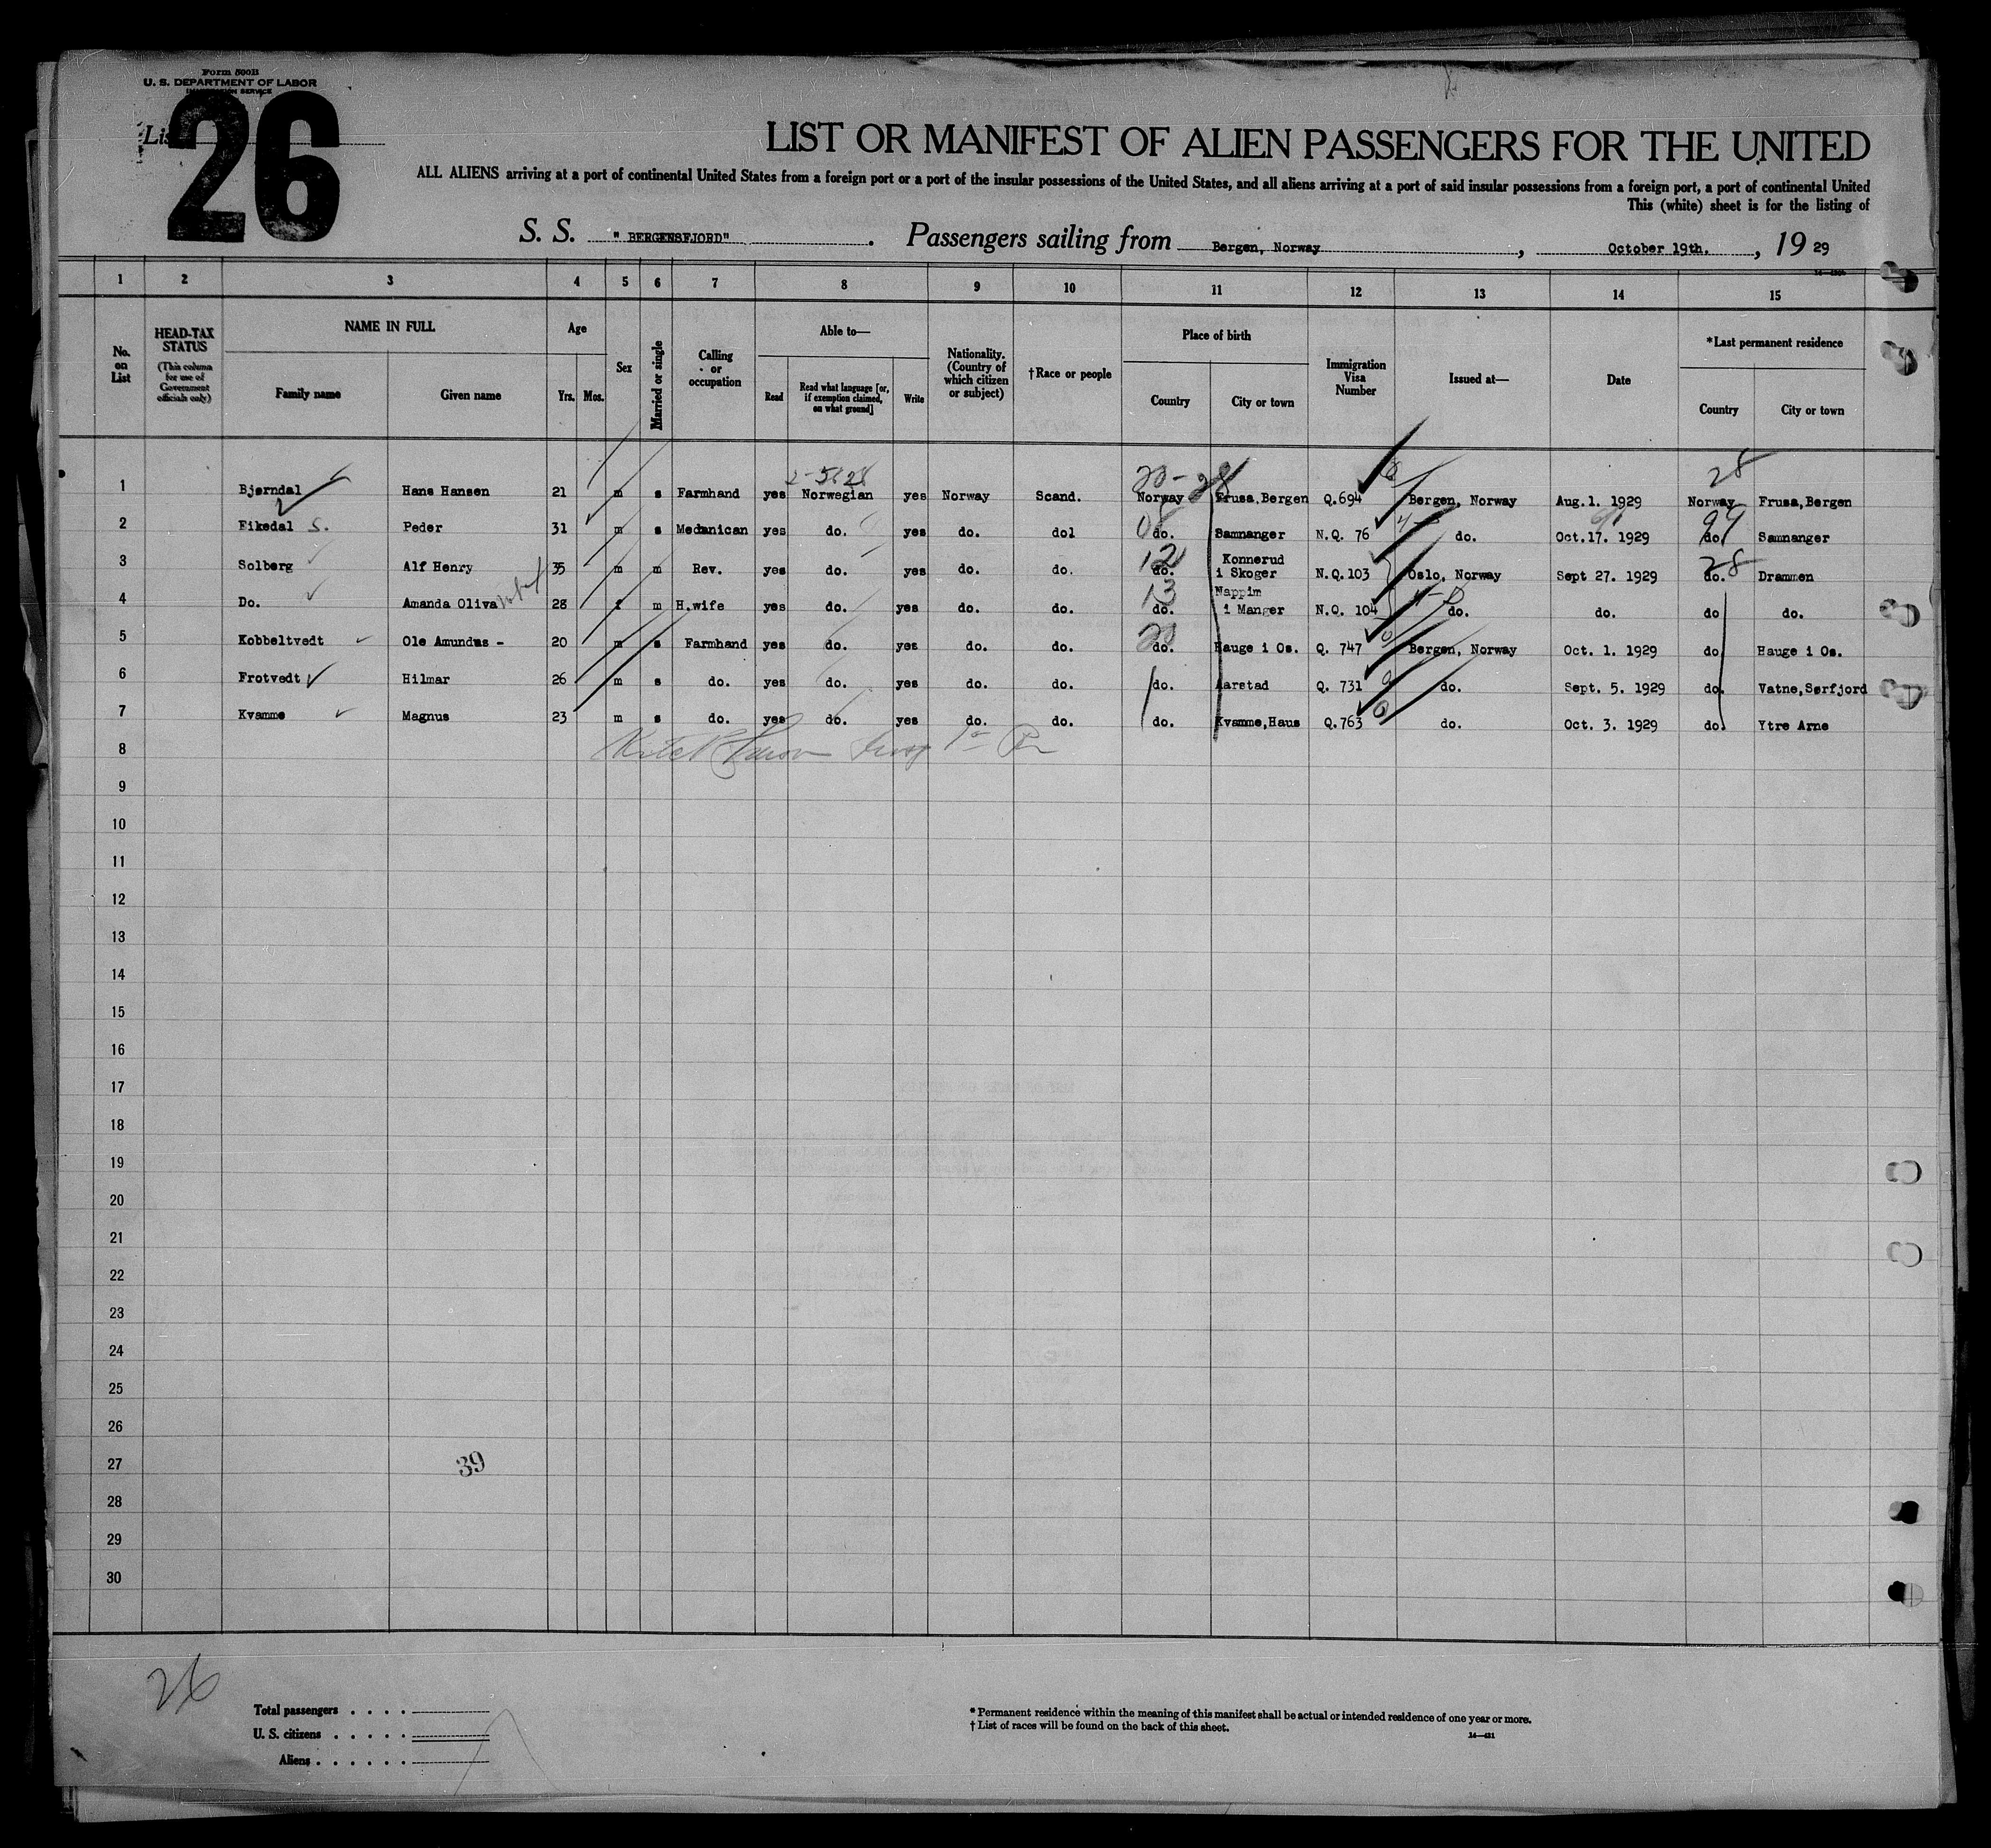 Form 500B
U. S. DEPARTMENT OF LABOR
IMMIGRATION SERVICE
List
26
LIST OR MANIFEST OF ALIEN PASSENGERS FOR THE UNITED
ALL ALIENS arriving at a port of continental United States from a foreign port or a port of the insular possessions of the United States, and all aliens arriving at a port of said insular possessions from a foreign port, a port of continental United
This (white) sheet is for the listing of
S. S. " BERGENSFJORD" . Passengers sailing from Bergen, Norway , October 19th. , 19 29
1 2 3 4 5 6 7 8 9 10 11 12 13 14 15
No. on List HEAD-TAX STATUS (This column for use of Government officials only) NAME IN FULL Family name Given name Age Yrs. Mos. Sex Married or single Calling or occupation Able to— Read Read what language [or, if exemption claimed, on what ground] Write Nationality. (Country of which citizen or subject) †Race or people Place of birth Country City or town Immigration Visa Number Issued at— Date *Last permanent residence Country City or town
20-28 28
1 Bjørndal Hans Hansen 21 m s Farmhand yes Norwegian yes Norway Scand. Norway Frusa,Bergen Q.694 Bergen, Norway Aug.1. 1929 Norway Frusa,Bergen
2 Eikedal S. Peder 31 m s Mechanican yes do. yes do. dol do. Samnanger N.Q. 76 do. Oct.17. 1929 do. Samnanger
3 Solberg Alf Henry 35 m m Rev. yes do. yes do. do. 12 do. Konnerud i Skoger N.Q.103 Oslo, Norway Sept 27. 1929 28 do. Drammen
4 Do. Amanda Oliva 28 f m H.wife yes do. yes do. do. 13 do. Nappim i Manger N.Q. 104 do. do. do do.
5 Kobbeltvedt Ole Amundus - 20 m s Farmhand yes do. yes do. do. 20 do. Hauge i Os. Q. 747 Bergen, Norway Oct. 1. 1929 do Hauge i Os.
6 Frotvedt Hilmar 26 m s do. yes do. yes do. do. do. Aarstad Q. 731 do. Sept. 5. 1929 do. Vatne,Sørfjord
7 Kvamme Magnus 23 m s do. yes do. yes do. do. do. Kvamme,Haus Q.763 do. Oct. 3. 1929 do. Ytre Arne
8
9
10
11
12
13
14
15
16
17
18
19
20
21
22
23
24
25
26
27
39
28
29
30
26
Total passengers . . . .
U. S. citizens . . . . .
Aliens . . . . . .
* Permanent residence within the meaning of this manifest shall be actual or intended residence of one year or more.
† List of races will be found on the back of this sheet.
14—431